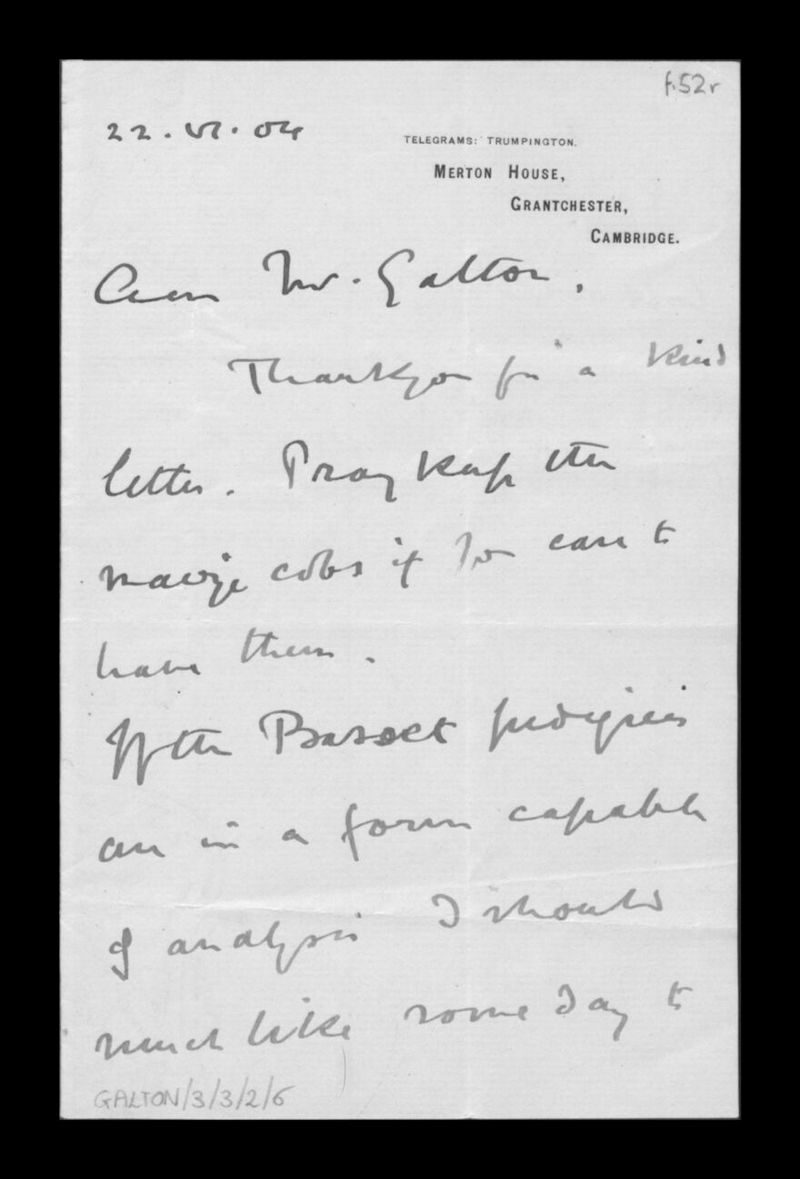 f.52r
22.VI.04
TELEGRAMS: TRUMPINGTON.
MERTON HOUSE,
GRANTCHESTER,
CAMBRIDGE.
Dear Mr. Galton,
Thank you for a kind
letter. Pray keep the
maize cobs if you care to
have them.
If the Basset pedigrees
are in a form capable
of analysis I should
much like some day to
GALTON/3/3/2/6